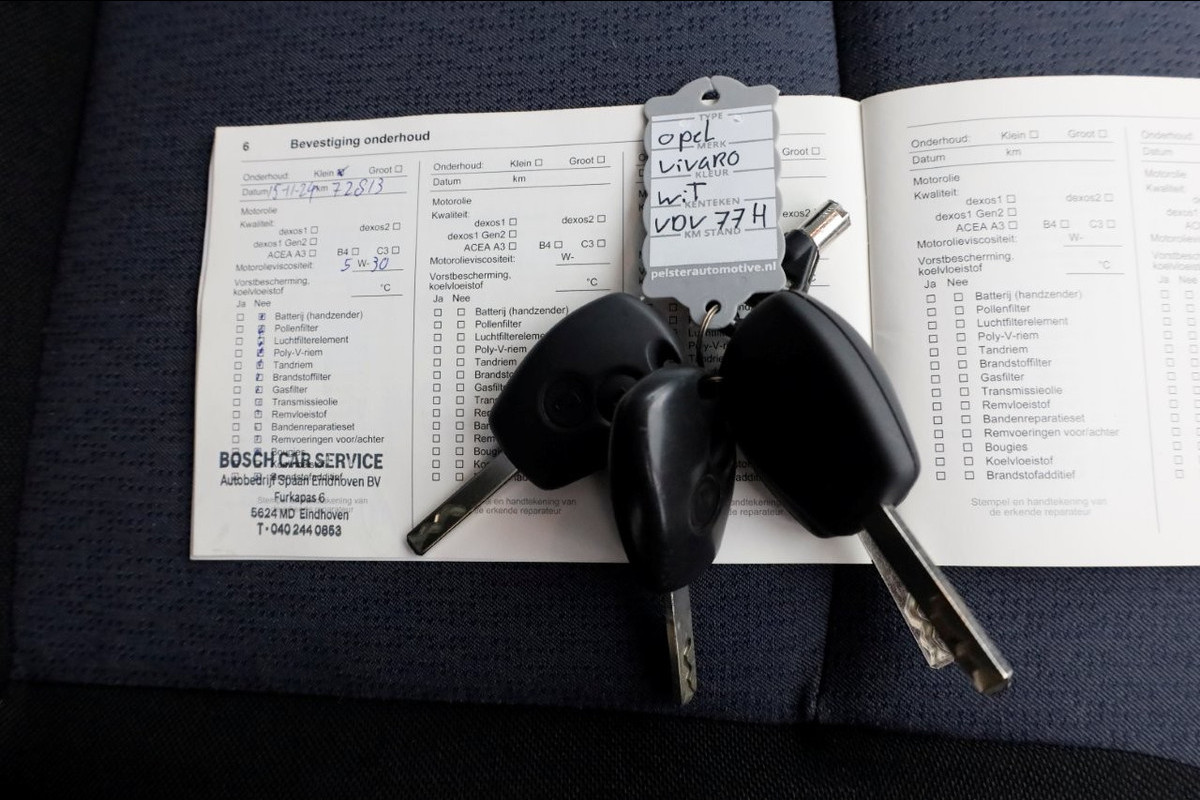 6 Bevestiging onderhoud
Onderhoud: Klein Groot
Datum 15-11-24 km 72813
Motorolie
Kwaliteit:
dexos1 dexos2
dexos1 Gen2
ACEA A3 B4 C3
Motorolieviscositeit: 5 W-30
Vorstbescherming,
koelvloeistof °C
Ja Nee
Batterij (handzender)
Pollenfilter
Luchtfilterelement
Poly-V-riem
Tandriem
Brandstoffilter
Gasfilter
Transmissieolie
Remvloeistof
Bandenreparatieset
Remvoeringen voor/achter
BOSCH CAR SERVICE
Autobedrijf Spaan Eindhoven BV
Furkapas 6
5624 MD Eindhoven
T • 040 244 0853
Onderhoud: Klein Groot
Datum km
Motorolie
Kwaliteit:
dexos1 dexos2
dexos1 Gen2
ACEA A3 B4 C3
Motorolieviscositeit: W-
Vorstbescherming,
koelvloeistof °C
Ja Nee
Batterij (handzender)
Pollenfilter
Luchtfilterelement
Poly-V-riem
Tandriem
TYPE
Opel
MERK
Vivaro
KLEUR
Wit
KENTEKEN
VDV 77 H
KM STAND
pelsterautomotive.nl
Groot
°C
Onderhoud: Klein Groot
Datum km
Motorolie
Kwaliteit:
dexos1 dexos2
dexos1 Gen2
ACEA A3 B4 C3
Motorolieviscositeit: W-
Vorstbescherming,
koelvloeistof °C
Ja Nee
Batterij (handzender)
Pollenfilter
Luchtfilterelement
Poly-V-riem
Tandriem
Brandstoffilter
Gasfilter
Transmissieolie
Remvloeistof
Bandenreparatieset
Remvoeringen voor/achter
Bougies
Koelvloeistof
Brandstofadditief
Stempel en handtekening van
de erkende reparateur
Onderhoud:
Datum
Motorolie
Kwaliteit: